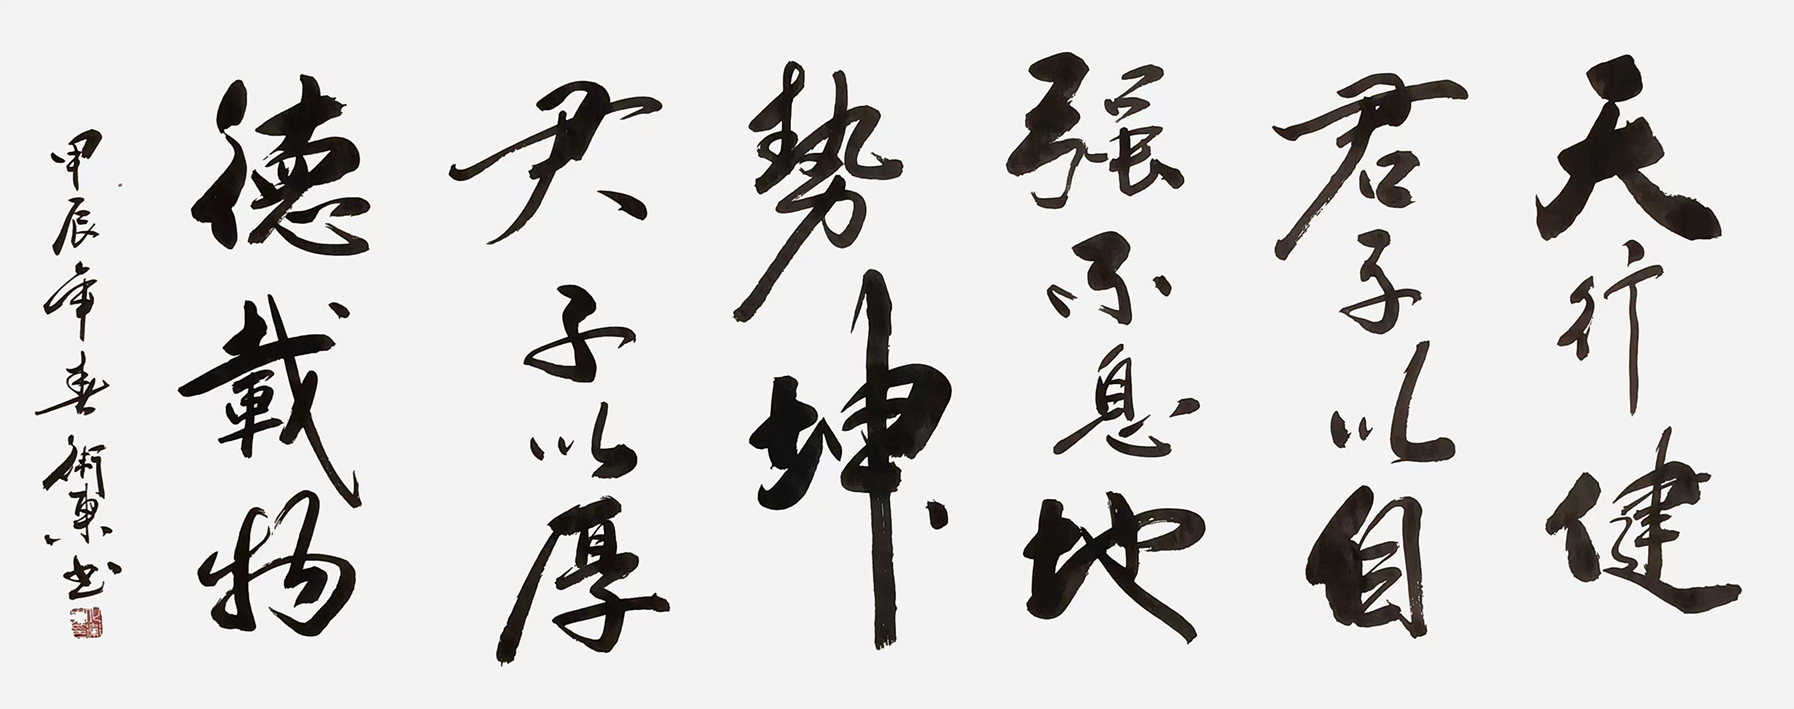 天行健
君子以自
强不息地
勢坤
君子以厚
德載物
甲辰年春衛東书